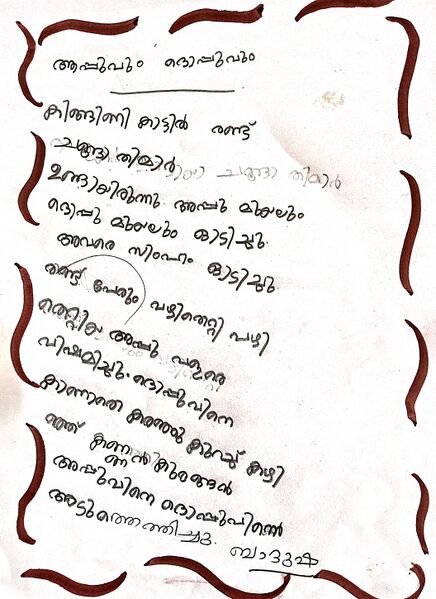 അപ്പുവും ദൊപ്പുവും
കിങ്ങിണി കാട്ടിൽ രണ്ട്
ചങ്ങാതിമാർ
ഉണ്ടായിരുന്നു അപ്പു മുയലും
ദൊപ്പു മുയലും ഓടിച്ചു.
അവരെ സിംഹം ഓടിച്ചു
രണ്ട് പേരും വഴിതെറ്റി വഴി
തെറ്റിയ അപ്പു വളരെ
വിഷമിച്ചു. ദൊപ്പുവിനെ
കാണാതെ കരഞ്ഞു കുറച്ച് കഴി
ഞ്ഞ് കണ്ണൻ കുരങ്ങൻ
അപ്പുവിനെ ദൊപ്പുവിന്റെ
അടുത്തെത്തിച്ചു.
ബാദുഷ